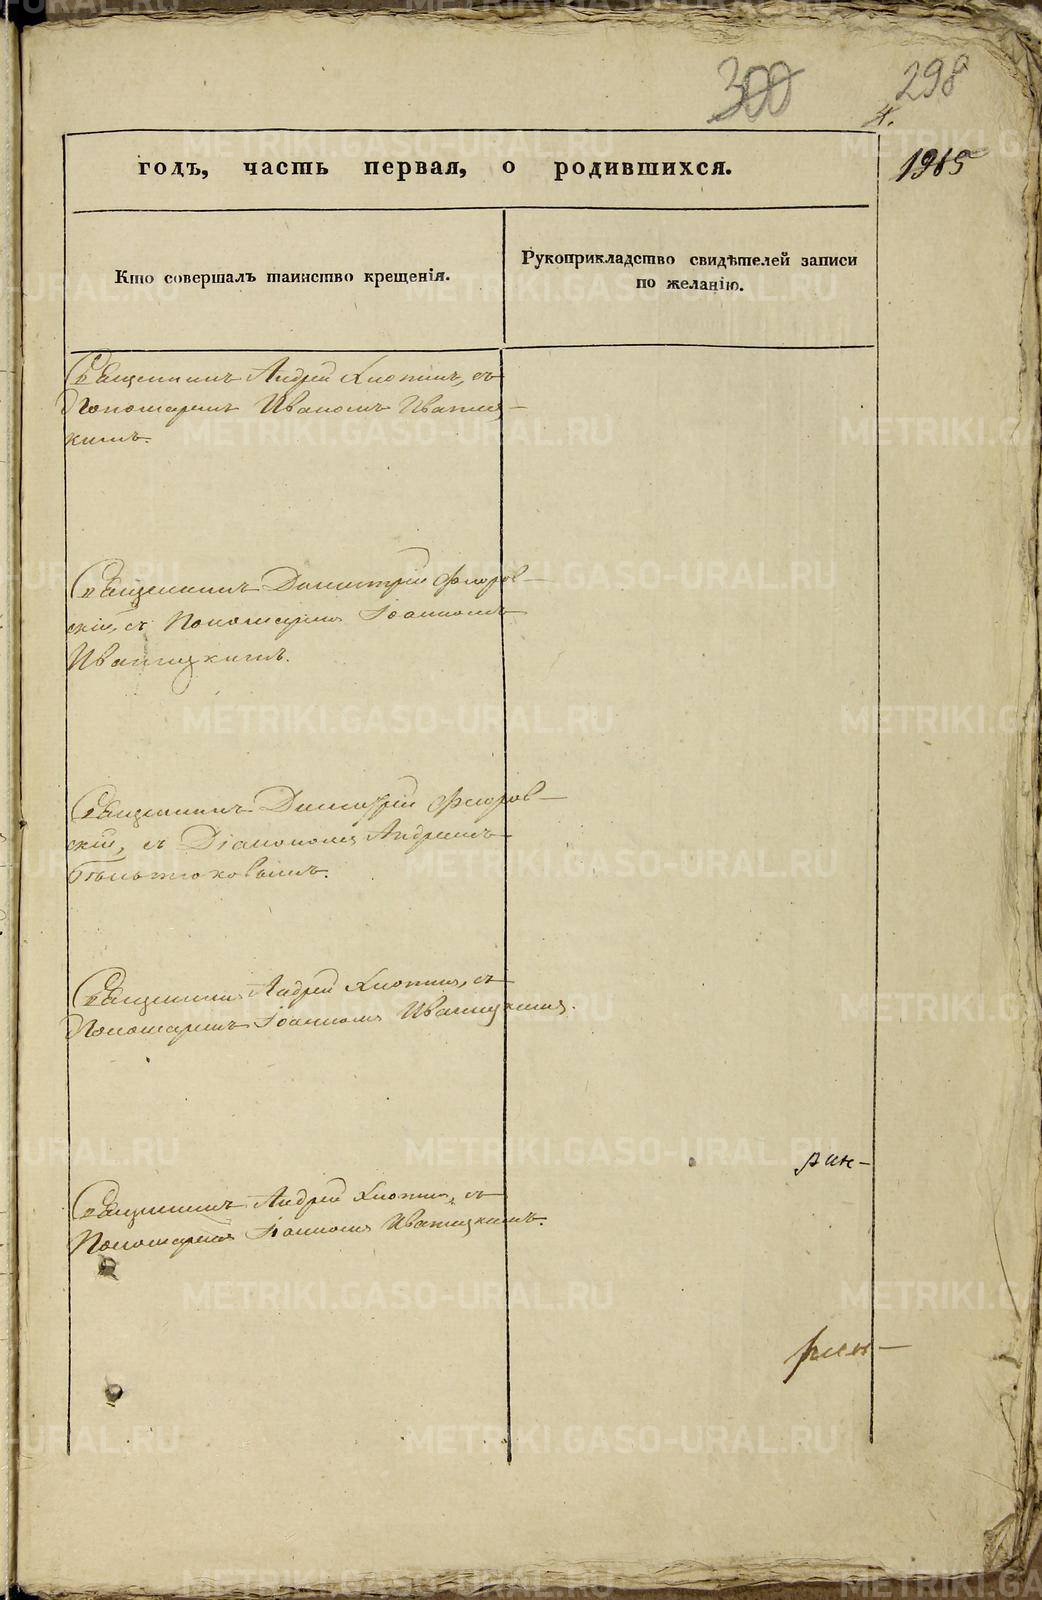 300
298
4.
1915
годъ, часть первая, о родившихся.
Кто совершалъ таинство крещенія.
Рукоприкладство свидѣтелей записи
по желанію.
Священникъ Андрей Кнотинъ, съ
Пономаремъ Иваномъ Иваниц-
кимъ.
Священникъ Димитрій Флоров-
скій, съ Пономаремъ Іоанномъ
Иваницкимъ.
Священникъ Димитрій Флоров-
скій, съ Діакономъ Андреемъ
Священникъ Андрей Кнотинъ, съ
Пономаремъ Іоанномъ Иваницкимъ.
Священникъ Андрей Кнотинъ, съ
Пономаремъ Іоанномъ Иваницкимъ.
METRIKI.GASO-URAL.RU